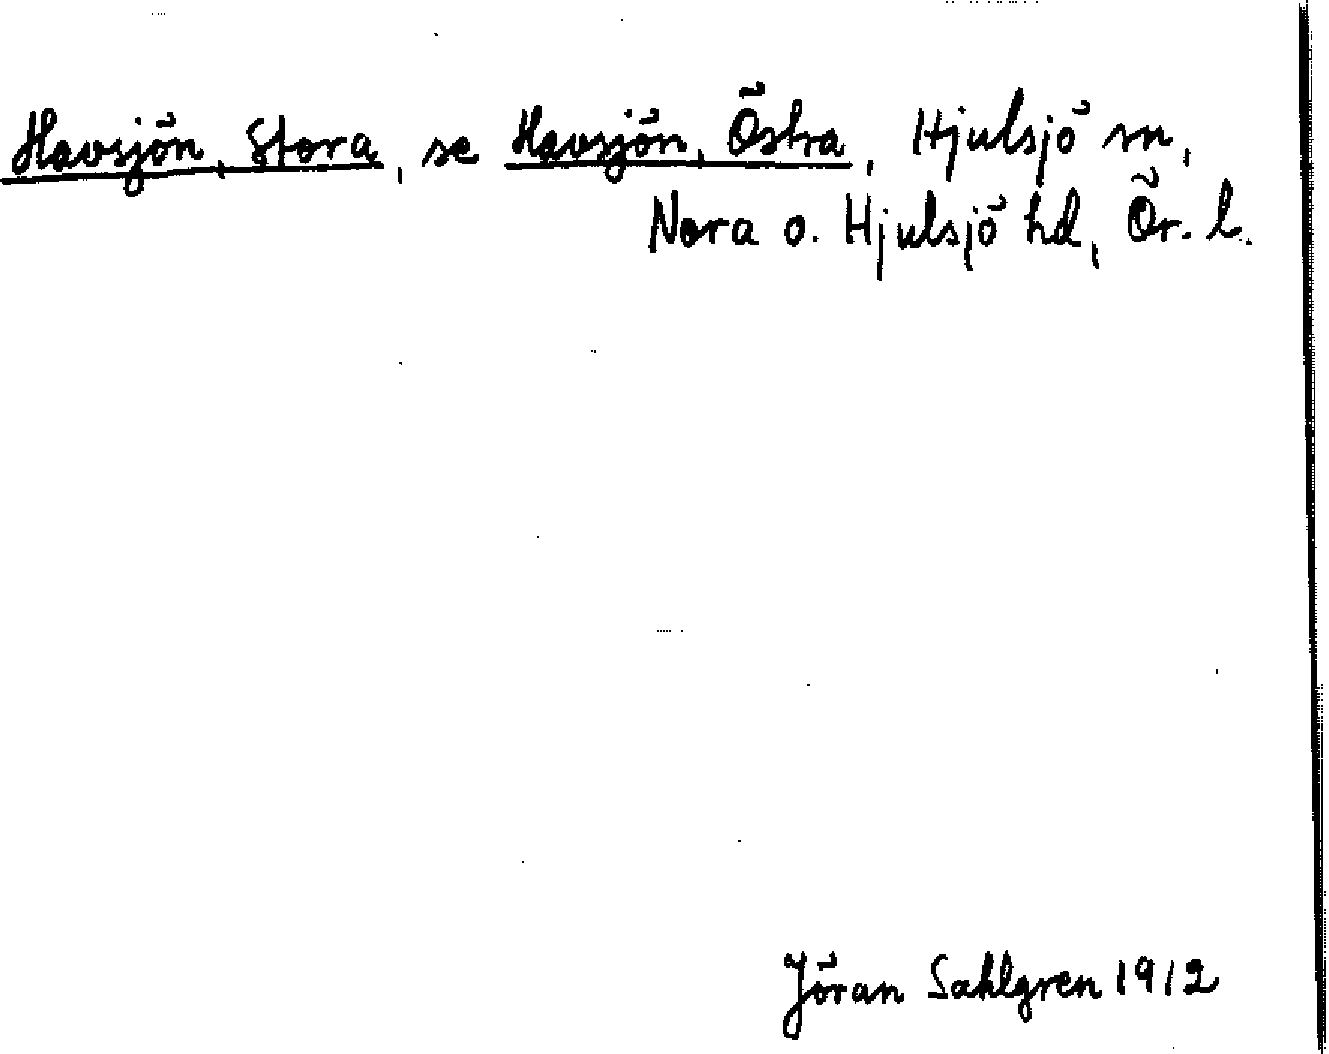 Havsjön, Stora, se Havsjön, Östra, Hjulsjö sn,
Nora o. Hjulsjö hd, Ör. l.
Jöran Sahlgren 1912